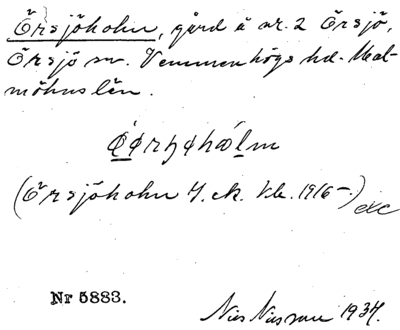 Örsjöholm, gård å nr. 2 Örsjö,
Örsjö sn. Vemmenhögs hd. Mal-
möhus län.
(Örsjöholm J. ek. kb. 1916–.)
Nr 5883.
Nils Nilsson 1937.